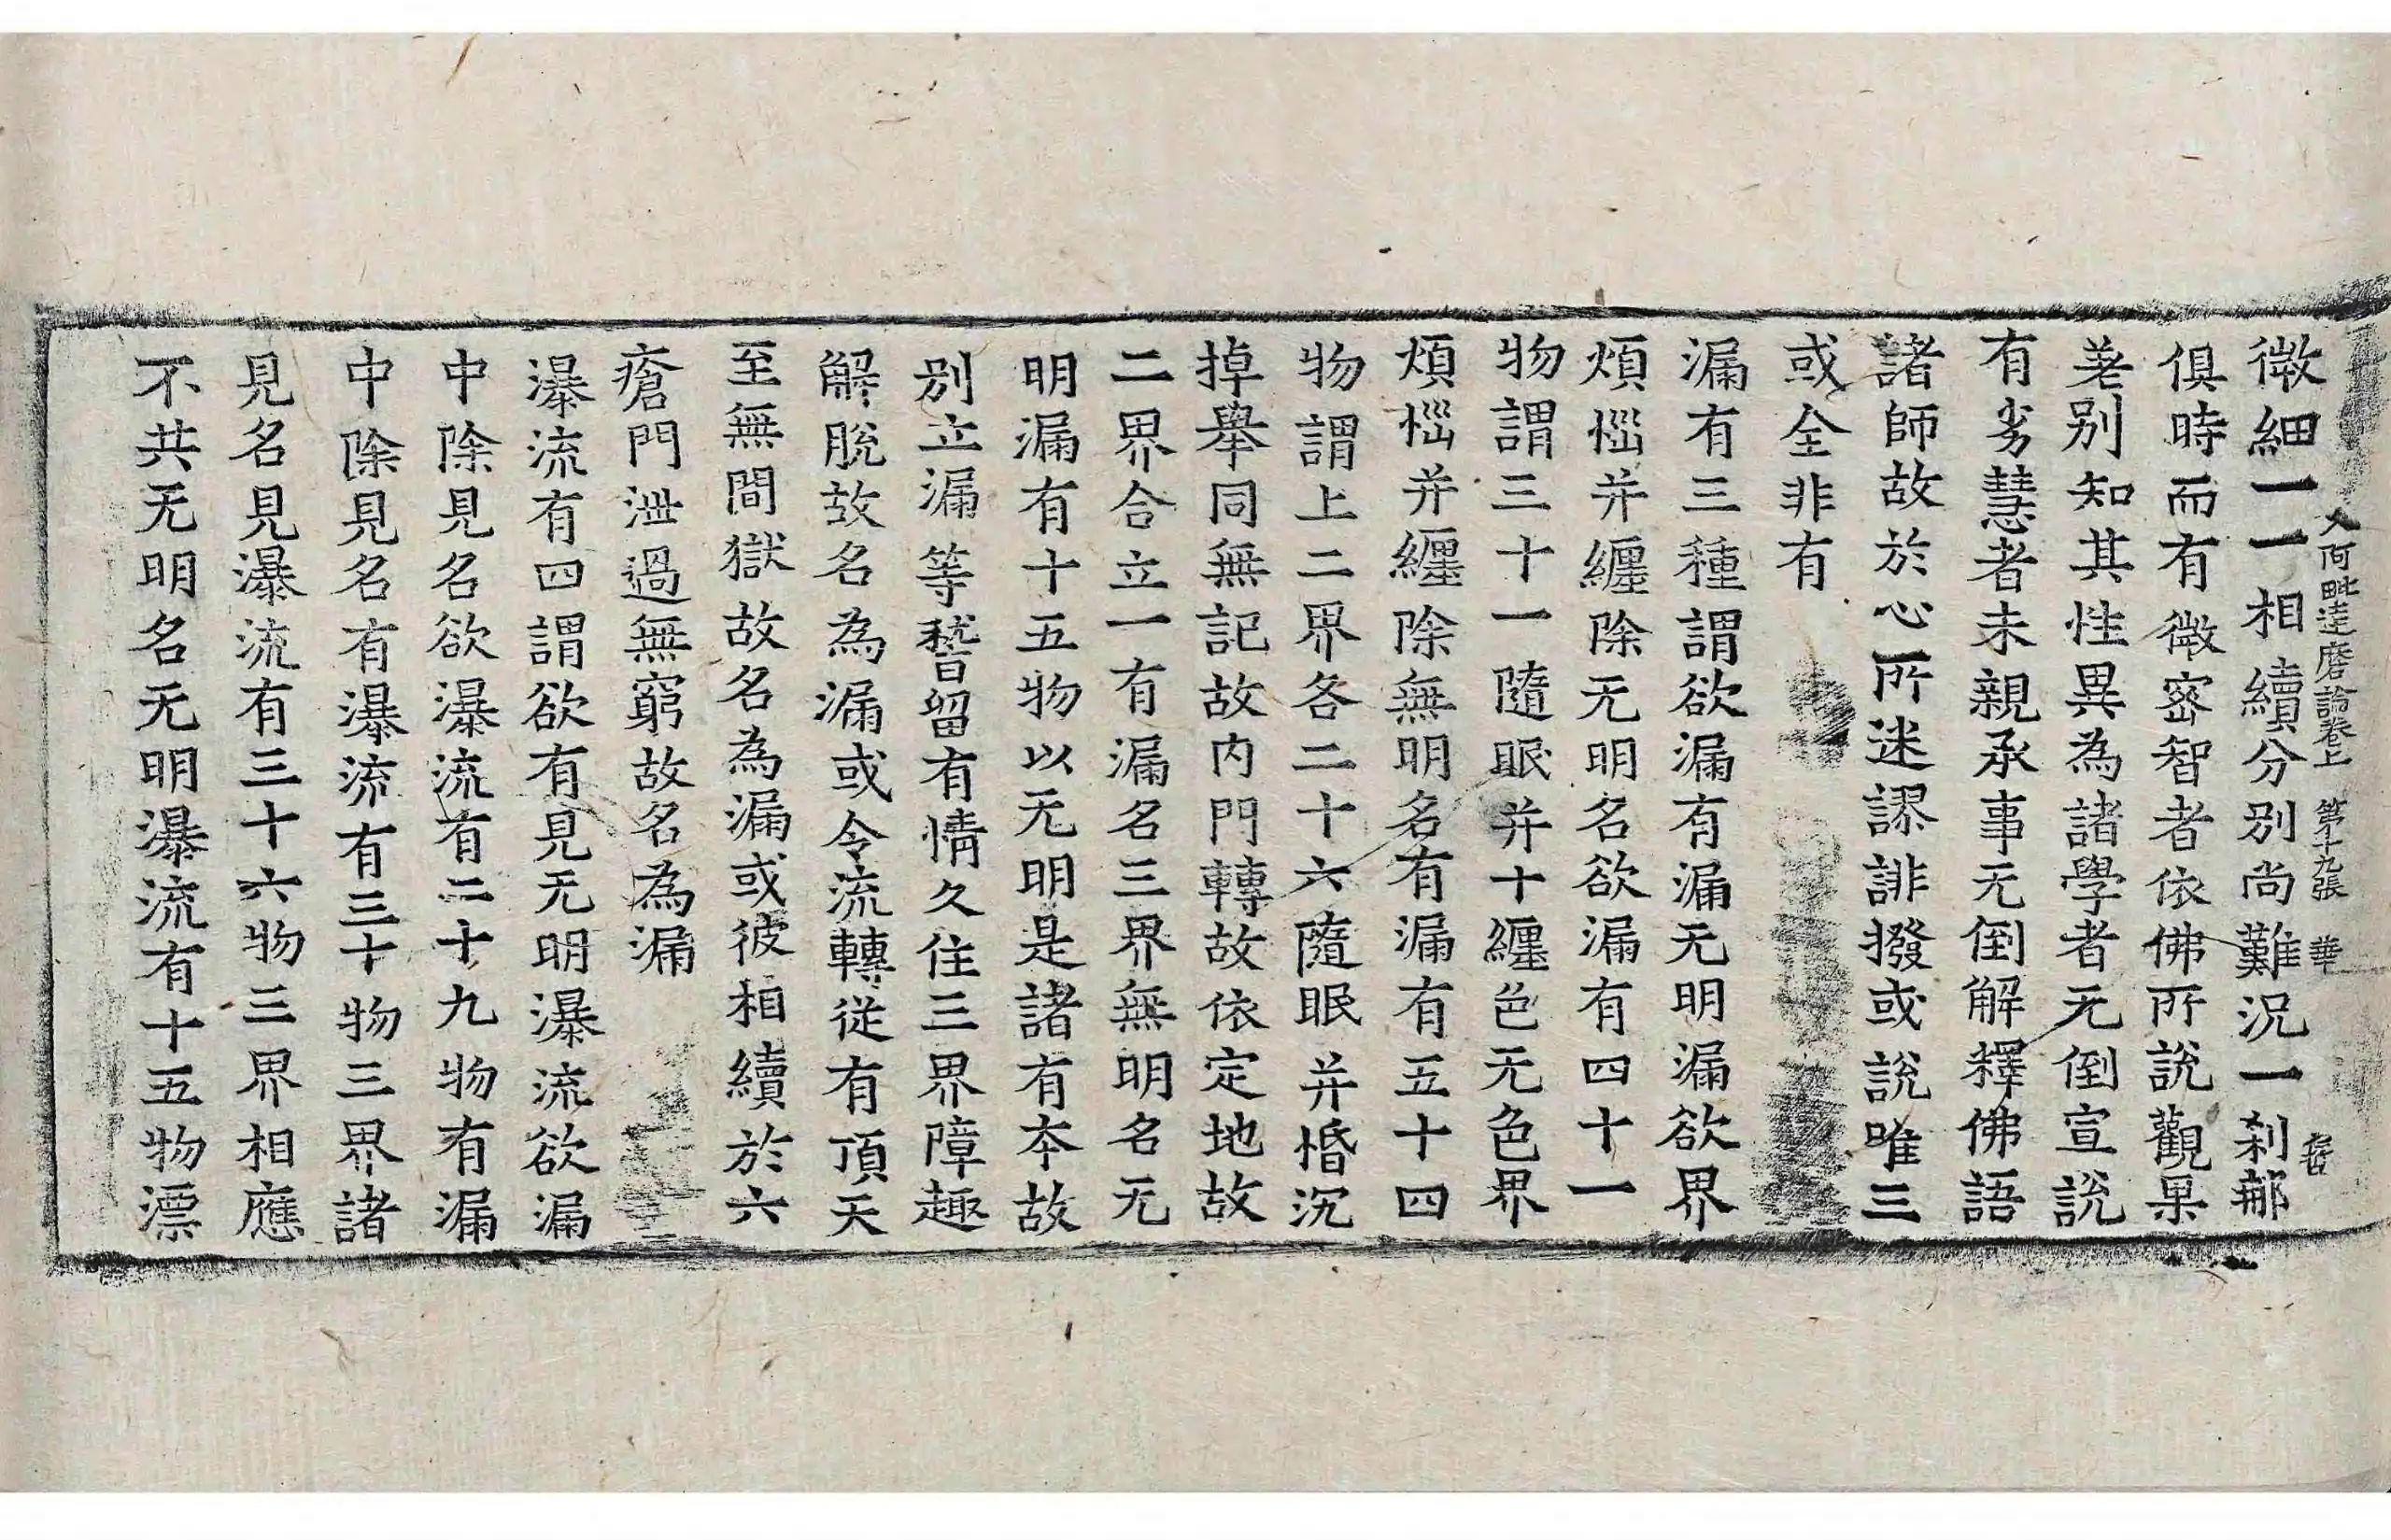 入阿毗達磨論卷上 第十九張 華
微細一一相續分別尚難況一刹那
俱時而有微密智者依佛所說觀果
差別知其性異為諸學者无倒宣說
有劣慧者未親承事无倒解釋佛語
諸師故於心所迷謬誹撥或說唯三
或全非有
漏有三種謂欲漏有漏无明漏欲界
煩惱并纏除无明名欲漏有四十一
物謂三十一隨眠并十纏色无色界
煩惱并纏除無明名有漏有五十四
物謂上二界各二十六隨眠并惛沉
掉舉同無記故内門轉故依定地故
二界合立一有漏名三界無明名无
明漏有十五物以无明是諸有本故
别立漏等稽留有情久住三界障趣
解脫故名為漏或令流轉從有頂天
至無間獄故名為漏或彼相續於六
瘡門泄過無窮故名為漏
瀑流有四謂欲有見无明瀑流欲漏
中除見名欲瀑流有二十九物有漏
中除見名有瀑流有三十物三界諸
見名見瀑流有三十六物三界相應
不共无明名无明瀑流有十五物漂